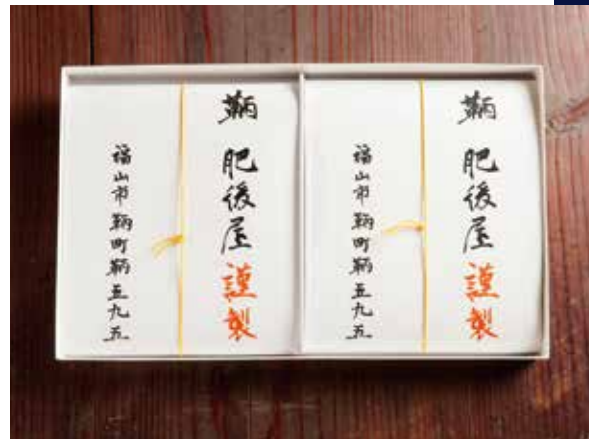 鞆 肥後屋 謹製
福山市鞆町鞆五九五
鞆 肥後屋 謹製
福山市鞆町鞆五九五